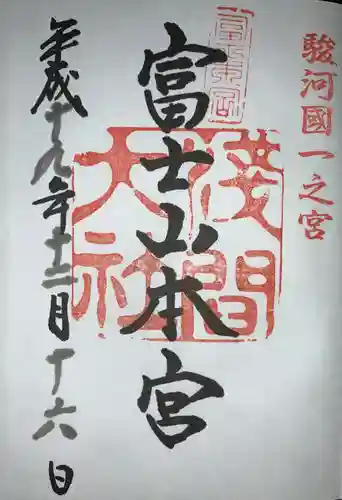 駿河國一之宮
富士本宮
富士山本宮
淺間大社
平成十九年十二月十六日